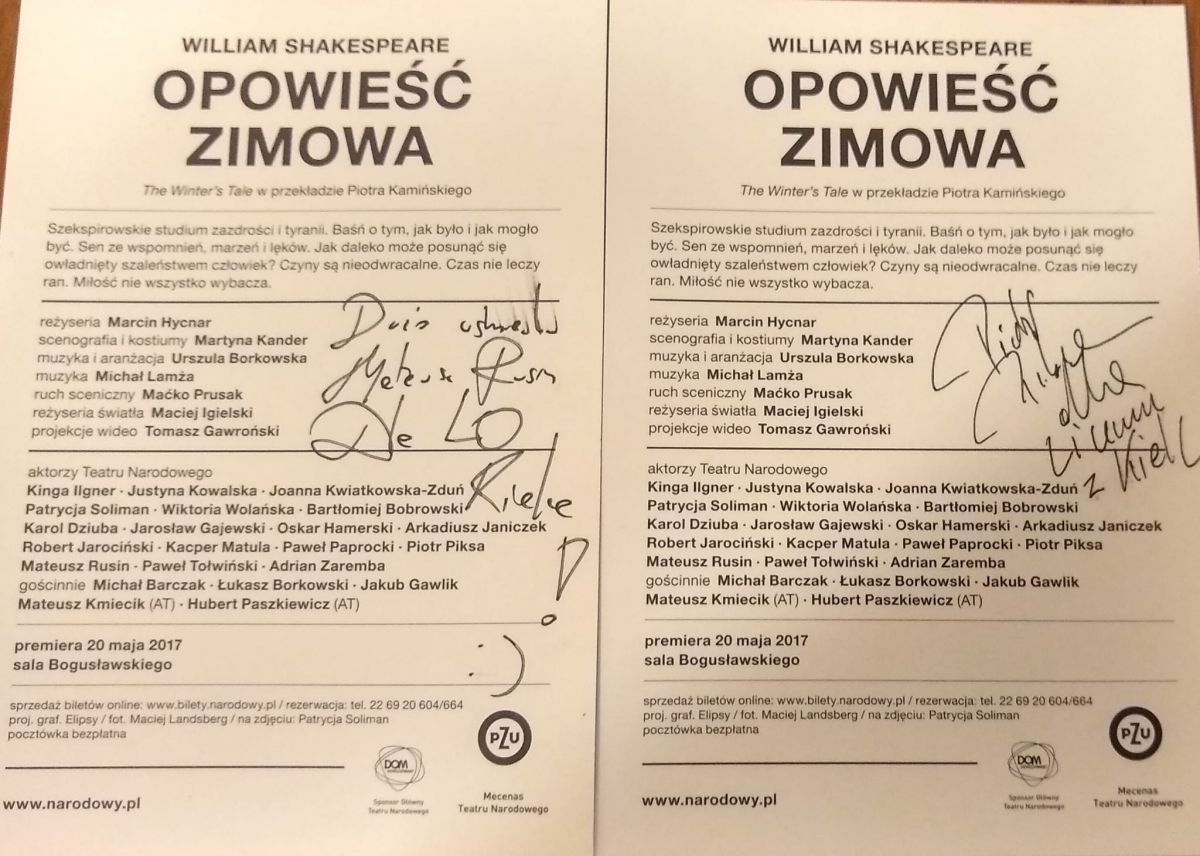 WILLIAM SHAKESPEARE
OPOWIEŚĆ
ZIMOWA
The Winter's Tale w przekładzie Piotra Kamińskiego
Szekspirowskie studium zazdrości i tyranii. Baśń o tym, jak było i jak mogło
być. Sen ze wspomnień, marzeń i lęków. Jak daleko może posunąć się
owładnięty szaleństwem człowiek? Czyny są nieodwracalne. Czas nie leczy
ran. Miłość nie wszystko wybacza.
reżyseria Marcin Hycnar
scenografia i kostiumy Martyna Kander
muzyka i aranżacja Urszula Borkowska
muzyka Michał Lamża
ruch sceniczny Maćko Prusak
reżyseria światła Maciej Igielski
projekcje wideo Tomasz Gawroński
Mateusz Rusin
Dle LO
Kielce
!
:)
aktorzy Teatru Narodowego
Kinga Ilgner · Justyna Kowalska · Joanna Kwiatkowska-Zduń
Patrycja Soliman · Wiktoria Wolańska · Bartłomiej Bobrowski
Karol Dziuba · Jarosław Gajewski · Oskar Hamerski · Arkadiusz Janiczek
Robert Jarociński · Kacper Matula · Paweł Paprocki · Piotr Piksa
Mateusz Rusin · Paweł Tołwiński · Adrian Zaremba
gościnnie Michał Barczak · Łukasz Borkowski · Jakub Gawlik
Mateusz Kmiecik (AT) · Hubert Paszkiewicz (AT)
premiera 20 maja 2017
sala Bogusławskiego
sprzedaż biletów online: www.bilety.narodowy.pl / rezerwacja: tel. 22 69 20 604/664
proj. graf. Elipsy / fot. Maciej Landsberg / na zdjęciu: Patrycja Soliman
pocztówka bezpłatna
www.narodowy.pl
DOM
Sponsor Główny
Teatru Narodowego
PZU
Mecenas
Teatru Narodowego
WILLIAM SHAKESPEARE
OPOWIEŚĆ
ZIMOWA
The Winter's Tale w przekładzie Piotra Kamińskiego
Szekspirowskie studium zazdrości i tyranii. Baśń o tym, jak było i jak mogło
być. Sen ze wspomnień, marzeń i lęków. Jak daleko może posunąć się
owładnięty szaleństwem człowiek? Czyny są nieodwracalne. Czas nie leczy
ran. Miłość nie wszystko wybacza.
reżyseria Marcin Hycnar
scenografia i kostiumy Martyna Kander
muzyka i aranżacja Urszula Borkowska
muzyka Michał Lamża
ruch sceniczny Maćko Prusak
reżyseria światła Maciej Igielski
projekcje wideo Tomasz Gawroński
dla
Liceum
z Kielc
aktorzy Teatru Narodowego
Kinga Ilgner · Justyna Kowalska · Joanna Kwiatkowska-Zduń
Patrycja Soliman · Wiktoria Wolańska · Bartłomiej Bobrowski
Karol Dziuba · Jarosław Gajewski · Oskar Hamerski · Arkadiusz Janiczek
Robert Jarociński · Kacper Matula · Paweł Paprocki · Piotr Piksa
Mateusz Rusin · Paweł Tołwiński · Adrian Zaremba
gościnnie Michał Barczak · Łukasz Borkowski · Jakub Gawlik
Mateusz Kmiecik (AT) · Hubert Paszkiewicz (AT)
premiera 20 maja 2017
sala Bogusławskiego
sprzedaż biletów online: www.bilety.narodowy.pl / rezerwacja: tel. 22 69 20 604/664
proj. graf. Elipsy / fot. Maciej Landsberg / na zdjęciu: Patrycja Soliman
pocztówka bezpłatna
www.narodowy.pl
DOM
Sponsor Główny
Teatru Narodowego
PZU
Mecenas
Teatru Narodowego